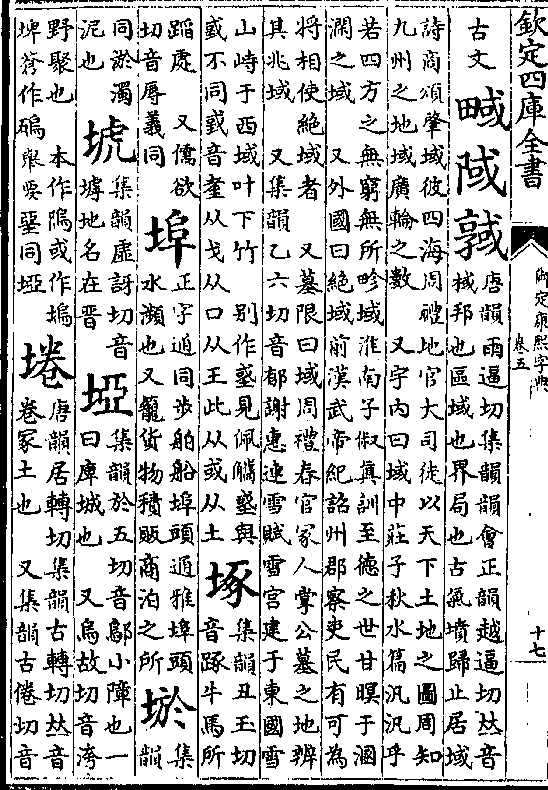 欽定四庫全書
御定康熙字典
卷五
十七
古文
㽣
唐韻雨逼切集韻韻會正韻越逼切𠀤音
棫邦也區域也界局也古氣墳歸止居域
詩商頌肇域彼四海周禮地官大司徒以天下土地之圖周知
九州之地域廣輪之數 又宇内曰域中莊子秋水篇汎汎乎
若四方之無窮無所畛域淮南子俶真訓至德之世甘暝于溷
澖之域 又外國曰絕域前漢武帝紀詔州郡察吏民有可為
將相使絕域者 又墓限曰域周禮春官冢人掌公墓之地辨
其兆域 又集韻乙六切音郁謝惠連雪賦雪宮建于東國雪
山峙于西域叶下竹 别作見佩觿與
或不同音从戈从口从王此从或从土
㙇
集韻丑玉切
音牛馬所
蹈處 又儒欲
切音辱義同
埠
正字通同步舶船埠頭通雅埠頭
水瀕也又籠貨物積販商泊之所
埿
集
韻
同淤濁
泥也
㙈
集韻虛訝切音
罅地名在晉
埡
集韻於五切音鄔小障也一
曰庳城也 又烏故切音洿
野聚也 本作隖或作塢
埤蒼作碼 與要堊同埡
埢
唐韻居轉切集韻古轉切𠀤音
卷冢土也 又集韻古倦切音